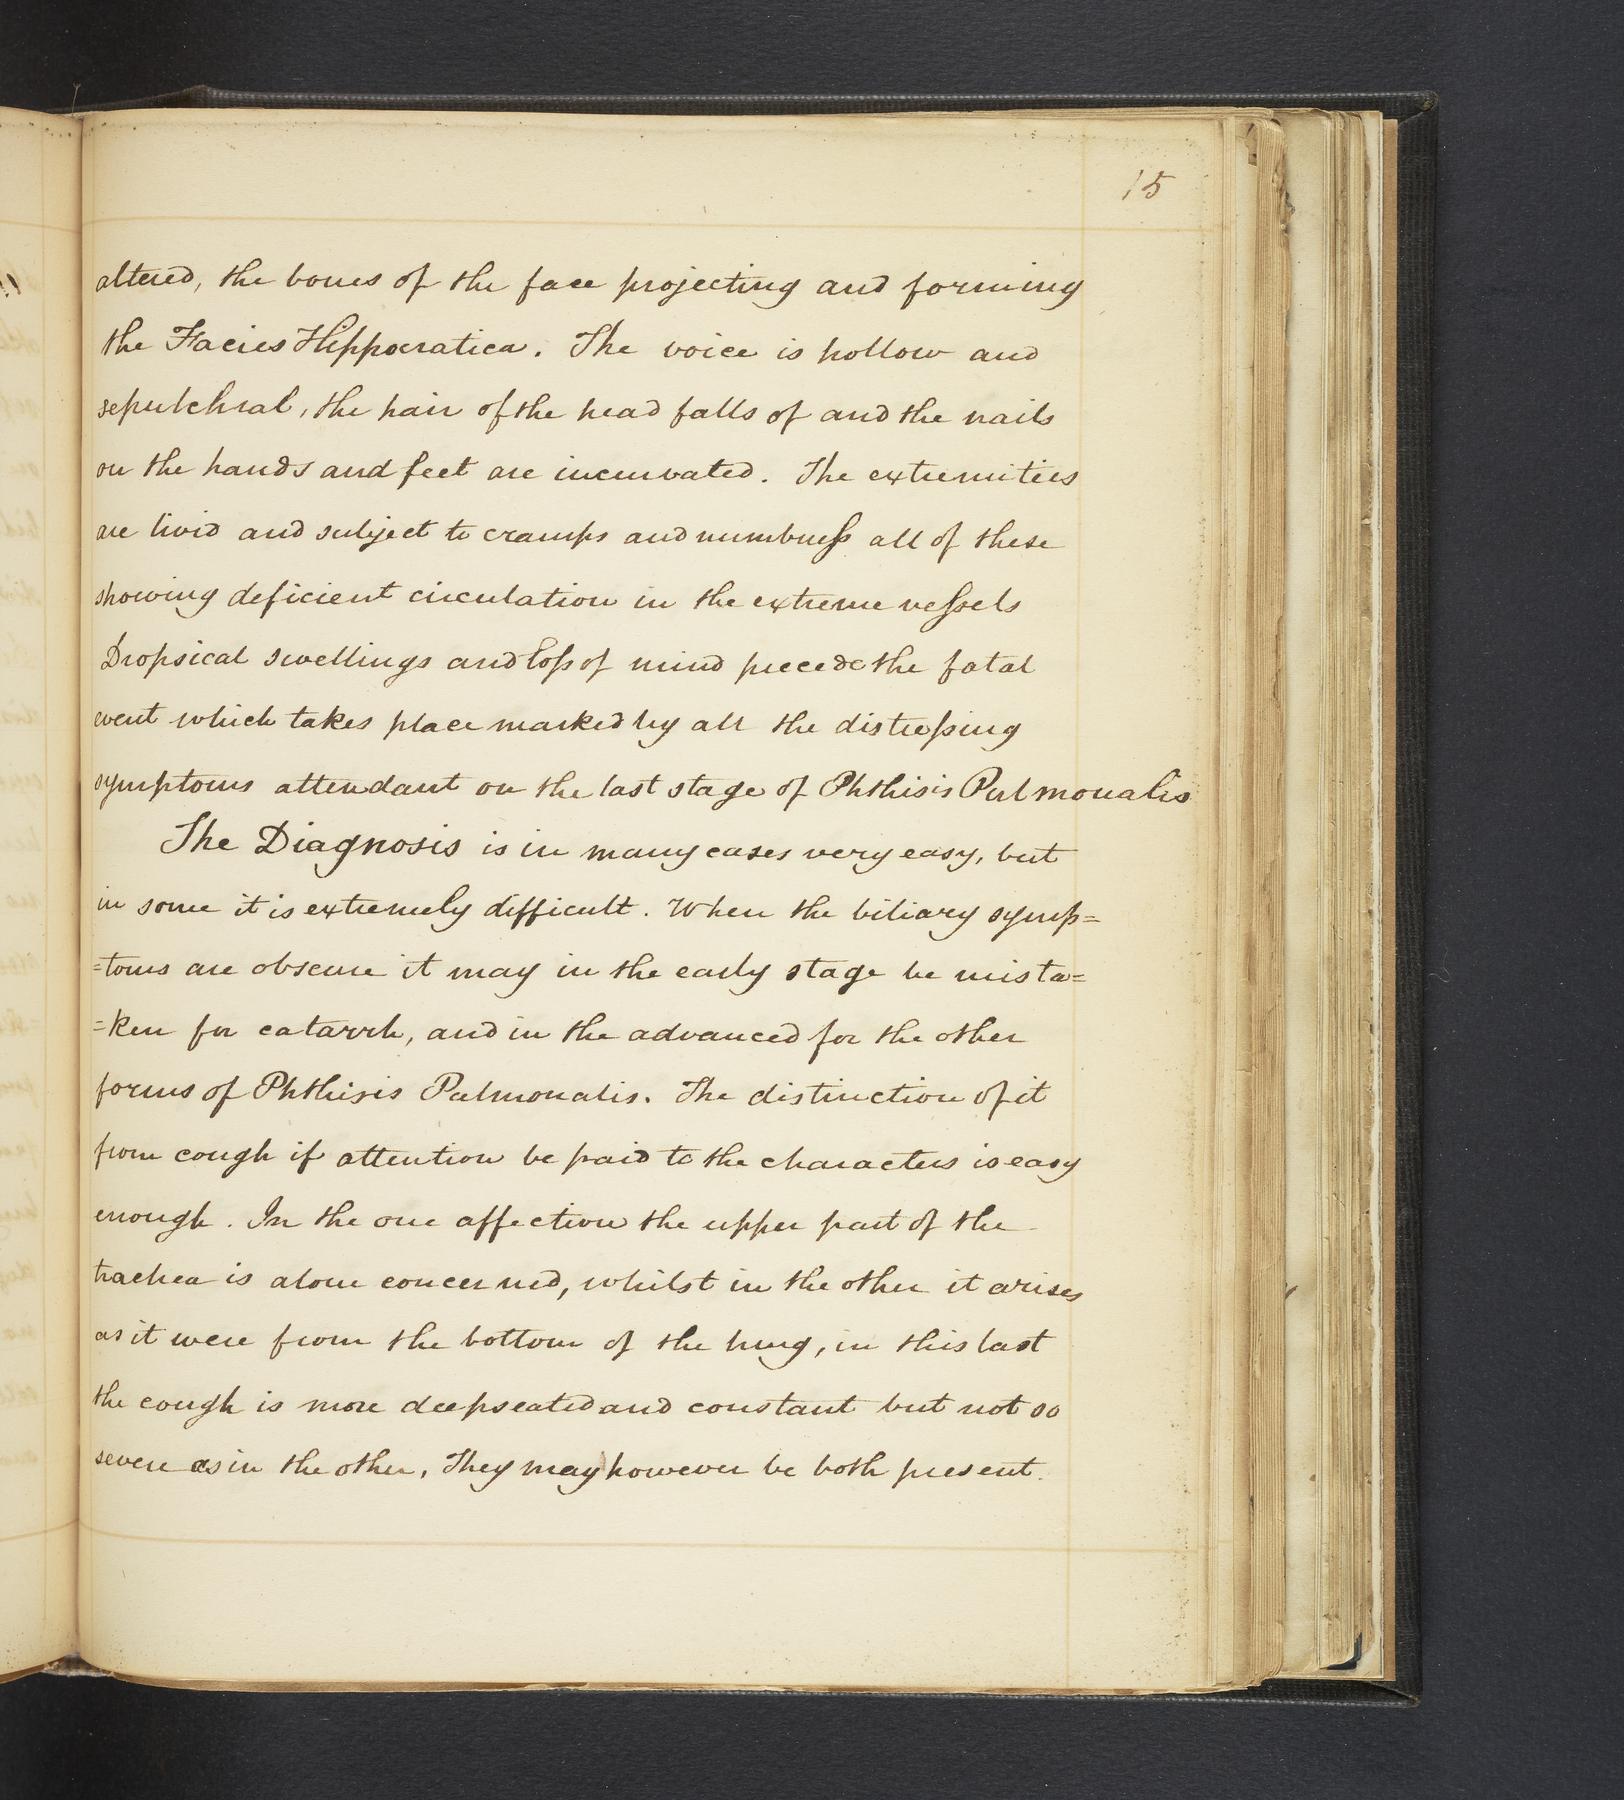 15
altered, the bones of the face projecting and forming
the Facies Hippocratica. The voice is hollow and
sepulchral, the hair of the head falls of and the nails
on the hands and feet are incurvated. The extremities
are livid and subject to cramps and numbness all of these
showing deficient circulation in the extreme vessels
Dropsical swellings and loss of mind precede the fatal
event which takes place marked by all the distressing
symptoms attendant on the last stage of Phthisis Pulmonalis
The Diagnosis is in many cases very easy, but
in some it is extremely difficult. When the biliary symp=
=toms are obscure it may in the early stage be mista=
=ken for catarrh, and in the advanced for the other
forms of Phthisis Pulmonalis. The distinction of it
from cough if attention be paid to the characters is easy
enough. In the one affection the upper part of the
trachea is alone concerned, whilst in the other it arises
as it were from the bottom of the lung, in this last
the cough is more deepseated and constant but not so
severe as in the other, They may however be both present.